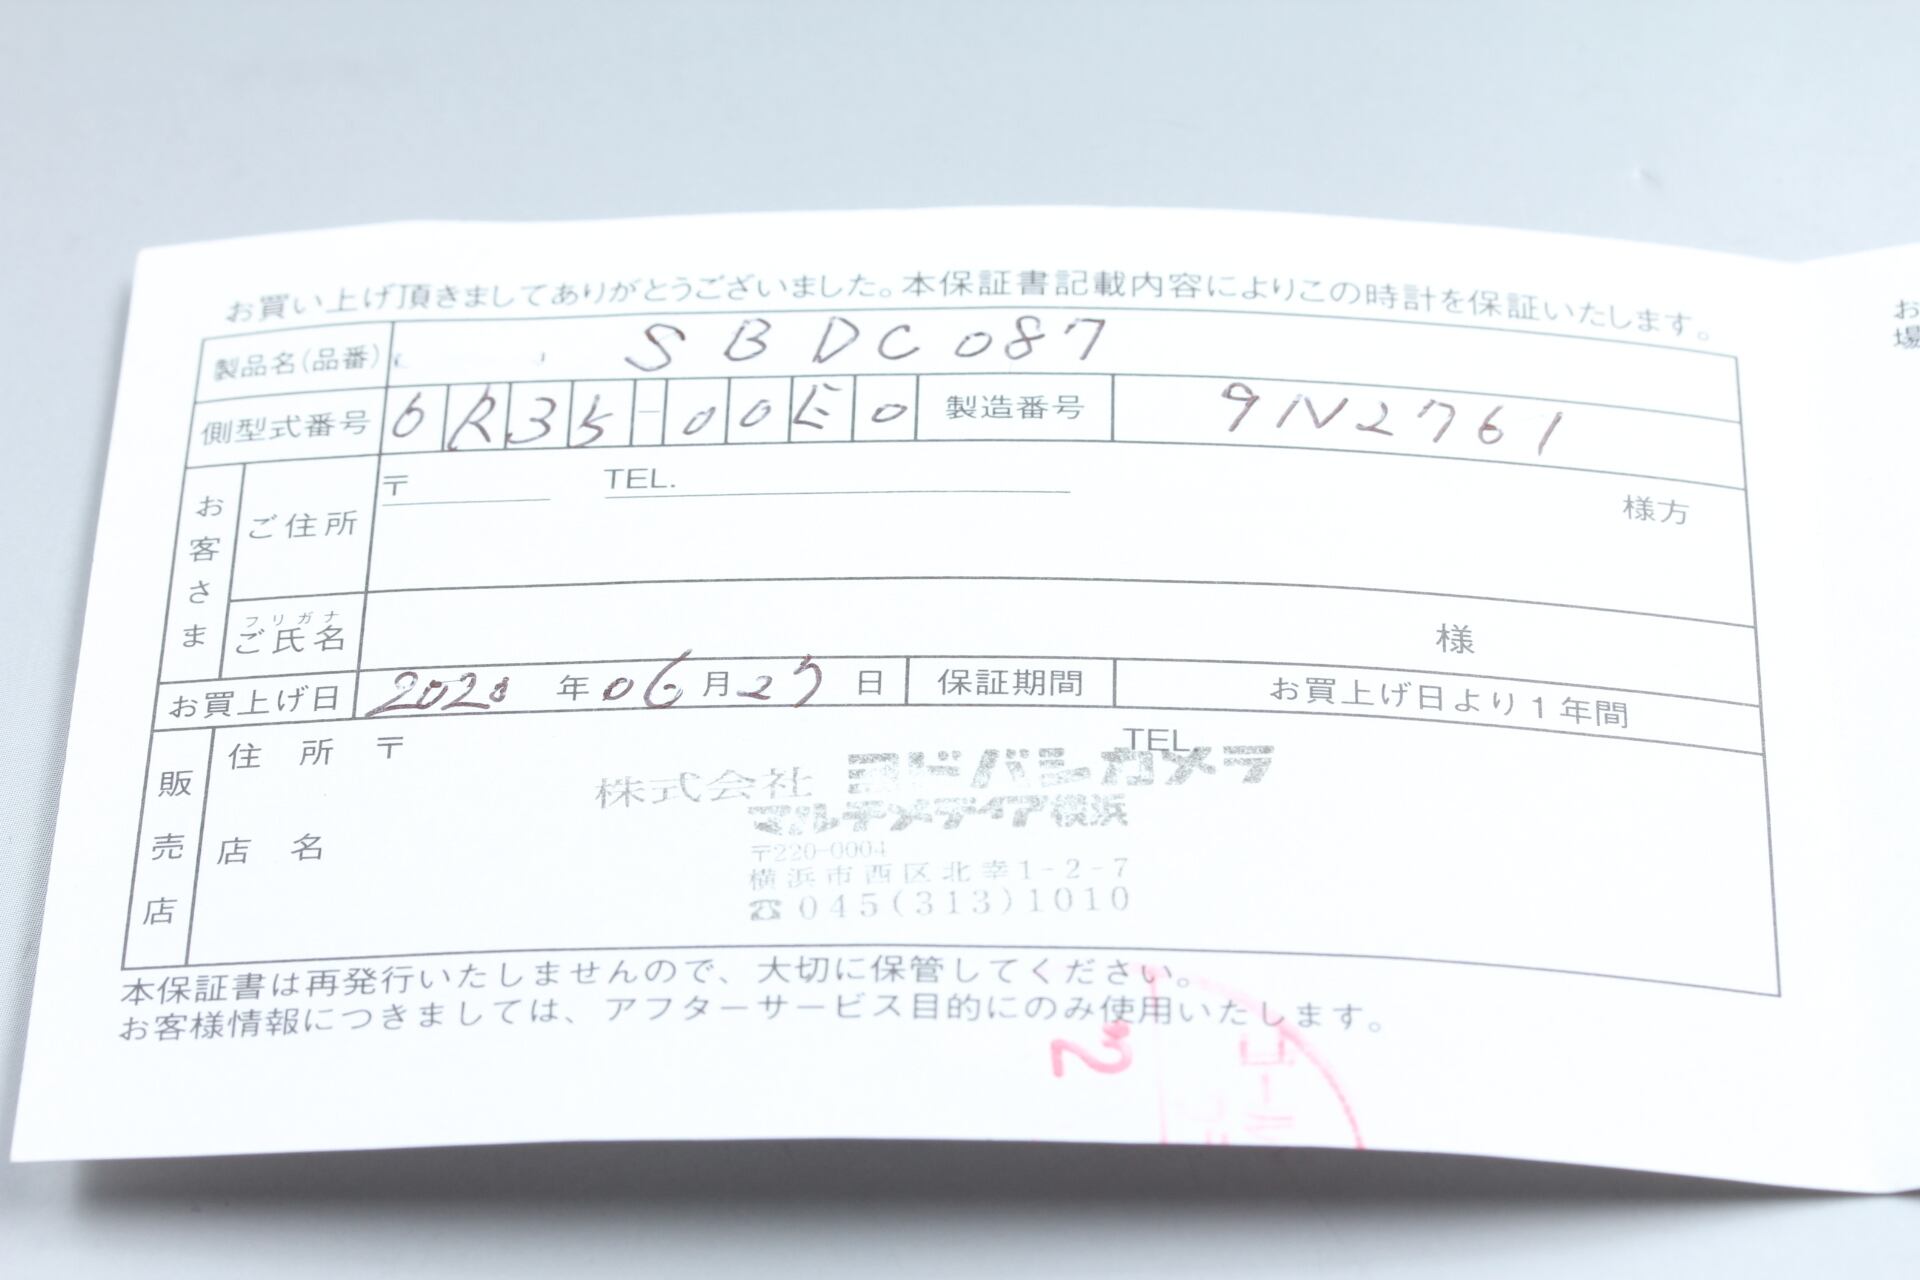 お買い上げ頂きましてありがとうございました。本保証書記載内容によりこの時計を保証いたします。
製品名(品番) SBDC087
側型式番号 6R35-00E0 製造番号 9N2761
お客さま
ご住所 〒 TEL. 様方
フリガナ
ご氏名 様
お買上げ日 2020年06月27日 保証期間 お買上げ日より1年間
販売店
住所 〒 TEL.
株式会社 ヨドバシカメラ
マルチメディア横浜
店名
〒220-0004
横浜市西区北幸1-2-7
☎045(313)1010
本保証書は再発行いたしませんので、大切に保管してください。
お客様情報につきましては、アフターサービス目的にのみ使用いたします。
ゴール
お
場